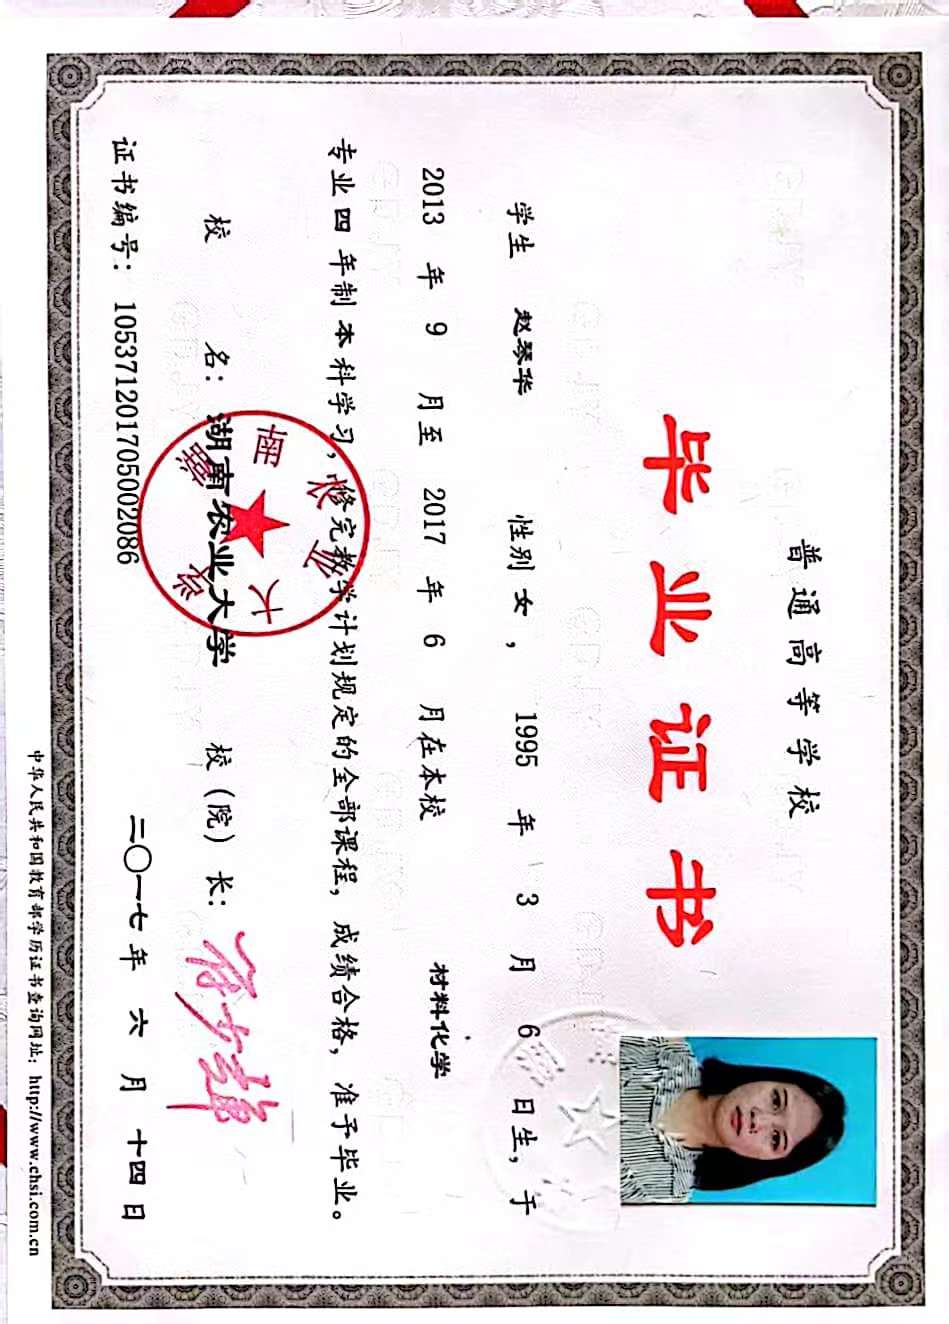 普通高等学校
毕业证书
学生 赵琴华 性别 女， 1995 年 3 月 6 日生，于
2013 年 9 月至 2017 年 6 月在本校 材料化学
专业 四 年制 本 科学习，修完教学计划规定的全部课程，成绩合格，准予毕业。
校 名： 湖南农业大学 校（院）长：
湖南农业大学
证书编号： 105371201705002086 二〇一七 年 六 月 十四 日
中华人民共和国教育部学历证书查询网址：http://www.chsi.com.cn